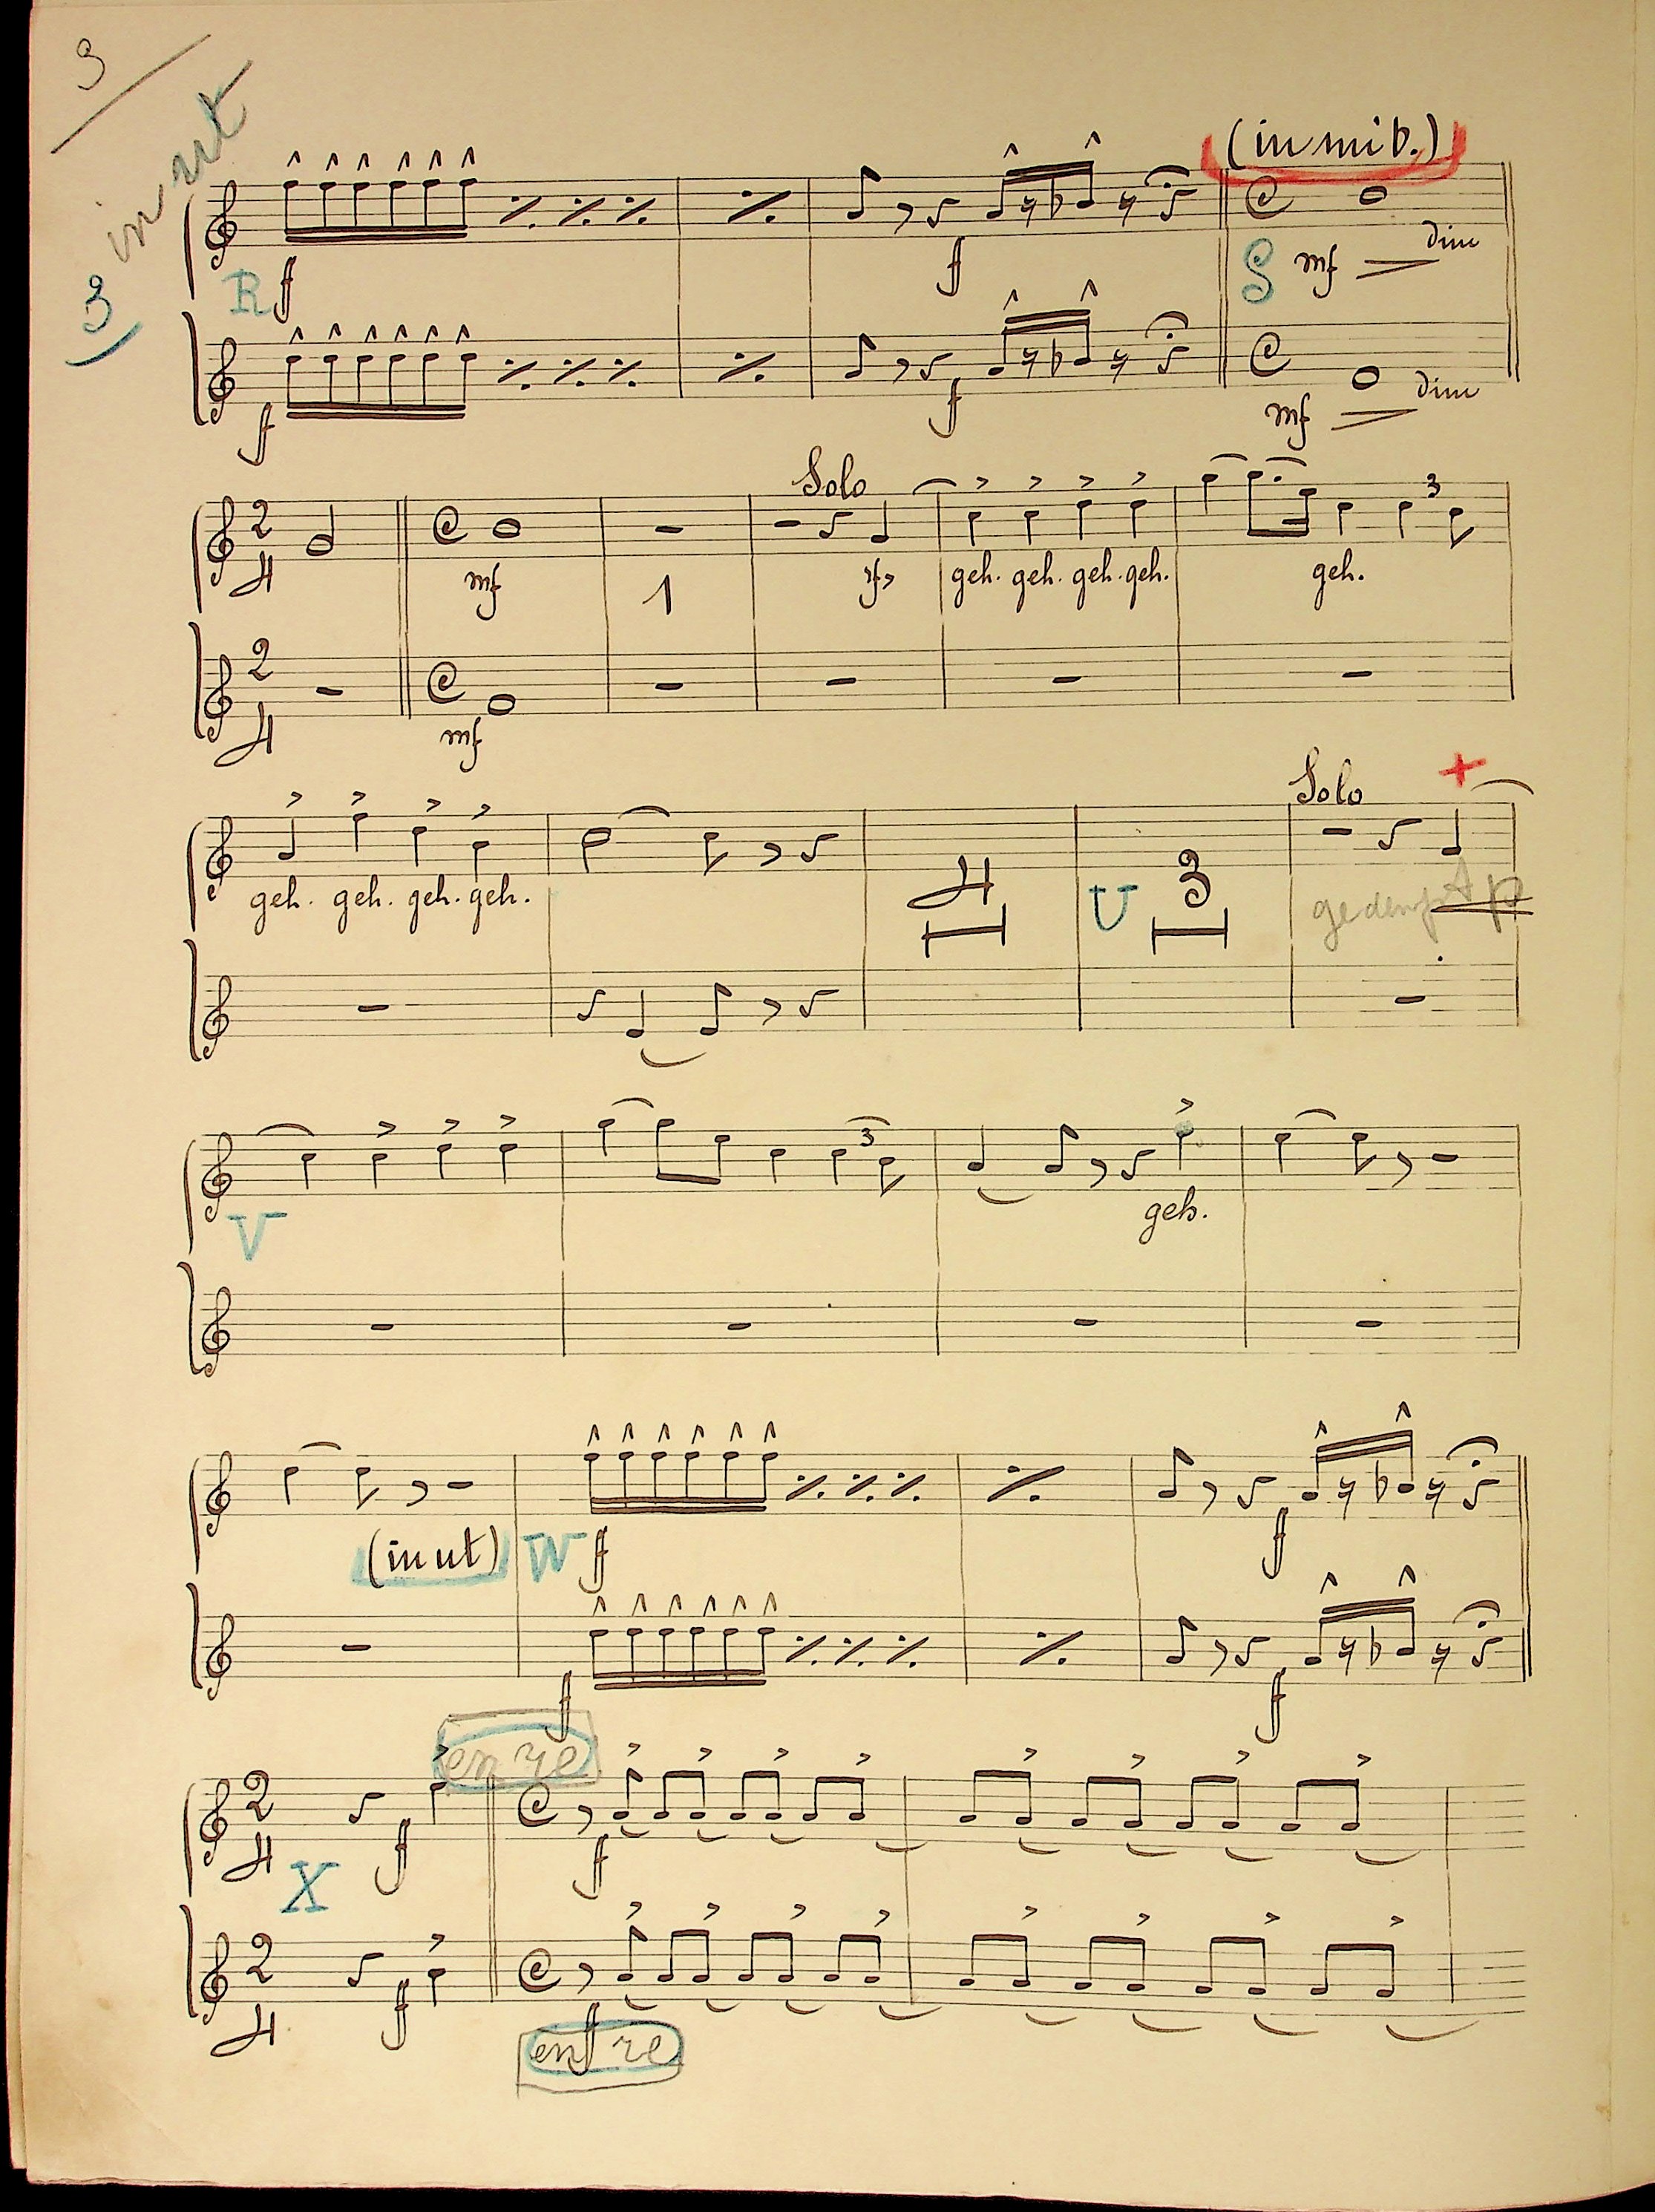 3
3 in ut
(in mi b.)
R f f S mf dim
f f mf dim
Solo
2 4 mf 1 sf geh. geh. geh. geh. geh. 3
2 4 mf
Solo +
geh. geh. geh. geh. 4 U 3 gedempt p
3
V geh.
(in ut) W f f
f f
en re
2 4 X f f
2 4 f f
en re